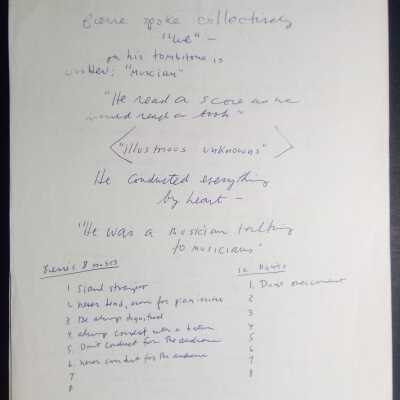 Pierre spoke collectively
"we" —
on his tombstone is
written: "Musician"
"He read a score as we
would read a book"
"illustrious unknowns"
He conducted everything
by heart —
"He was a musician talking
to musicians"
Pierre's 8 musts
1 Stand straight
2 never bend, even for pianissimo
3 Be always dignified
4 always conduct with a baton
5. Don't conduct for the audience
6. never conduct for the audience
7
8
1. Don't overconduct
2
3
4
5
6
7
8